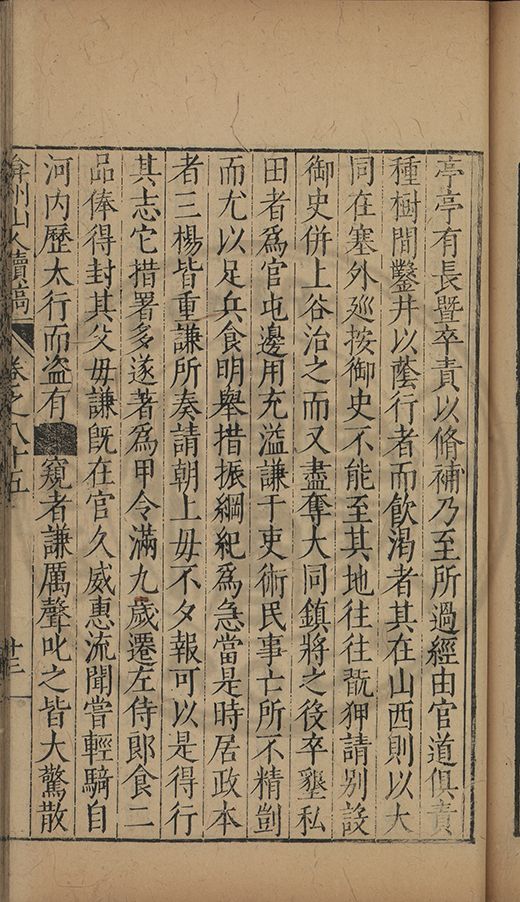 亭亭有長暨卒責以脩補乃至所過經由官道俱責
種樹間鑿井以蔭行者而飲渴者其在山西則以大
同在塞外廵按御史不能至其地往往翫狎請别設
御史併上谷治之而又盡奪大同鎮將之後卒墾私
田者爲官屯邊用充溢謙于吏術民事亡所不精剴
而尤以足兵食明舉措振綱紀爲急當是時居政本
者三楊皆重謙所奏請朝上毋不夕報可以是得行
其志它措署多遂著爲甲令滿九歲遷左侍郎食二
品俸得封其父毋謙旣在官久威惠流聞嘗輕騎自
河内歷太行而盗有窺者謙厲聲叱之皆大驚散
弇州山人續稿 卷之八十五 廿三